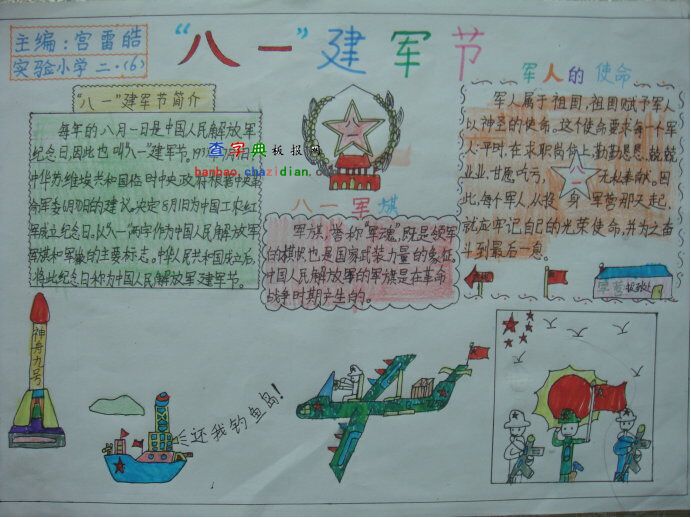 主编:宫雷皓
实验小学二·(6)
“八一”建军节
“八一”建军节简介
每年的八月一日是中国人民解放军
纪念日,因此也叫“八一”建军节。
中华苏维埃共和国临时中央政府根据中央革
命军委6月30日的建议,决定8月1日为中国工农红
军成立纪念日。以“八一”两字作为中国人民解放军
军旗和军徽的主要标志。中华人民共和国成立后,
将此纪念日称为中国人民解放军建军节。
查字典板报网
banbao.chazidian.com
八一
八一军旗
军旗,誉称“军魂”,既是领军
的旗帜也是国家武装力量的象征,
中国人民解放军的军旗是在革命
战争时期产生的。
军人的使命
军人属于祖国,祖国赋予军人
以神圣的使命。这个使命要求每个军
人:平时,在求职岗位上勤勤恳恳、兢兢
业业,甘愿吃亏,无私奉献。因
此,每个军人从投身军营那天起,
就应牢记自己的光荣使命,并为之奋
斗到最后一息。
八一
神舟九号
还我钓鱼岛!